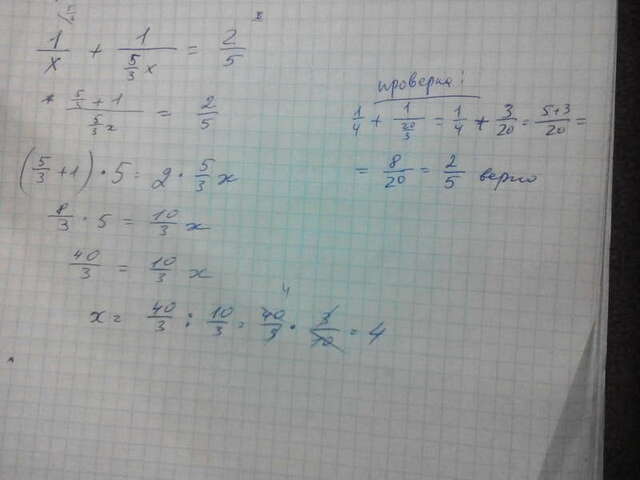 1/x + 1/(5/3 x) = 2/5
(5/3 + 1)/(5/3 x) = 2/5
(5/3 + 1) · 5 = 2 · 5/3 x
8/3 · 5 = 10/3 x
40/3 = 10/3 x
x = 40/3 : 10/3 = 40/3 · 3/10 = 4
проверка!
1/4 + 1/(20/3) = 1/4 + 3/20 = (5+3)/20 =
= 8/20 = 2/5 верно